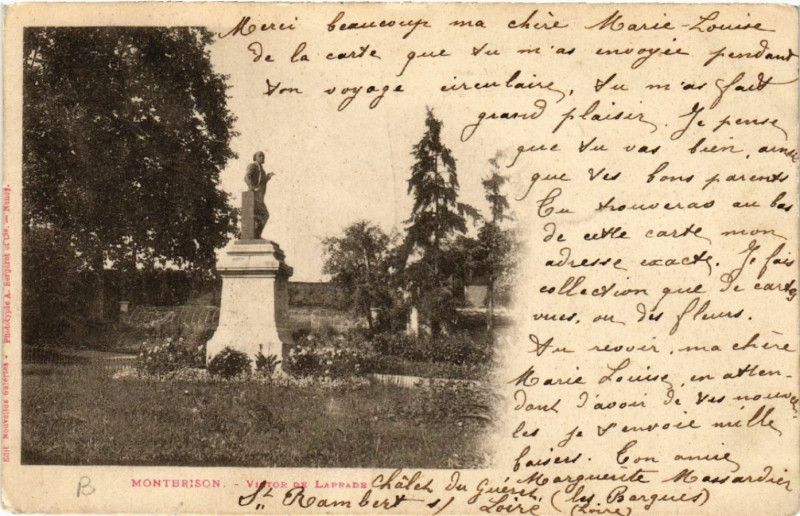 Merci beaucoup ma chère Marie-Louise
de la carte que tu m'as envoyée pendant
ton voyage circulaire, tu m'as fait
grand plaisir. Je pense
que tu vas bien, ainsi
que tes bons parents
Tu trouveras au bas
de cette carte mon
adresse exacte. Je fais
collection que de cartes
vues, ou des fleurs.
Au revoir, ma chère
Marie Louise, en atten-
dant d'avoir de tes nouvel-
les je t'envoie mille
baisers. Ton amie
Marguerite Massardier
MONTBRISON. - VICTOR DE LAPRADE
Châlet du Guéret (les Barques)
St Rambert s/ Loire (Loire)
B
Edit. Nouvelles Galeries - Phototypie A. Bergeret et Cie. - Nancy.